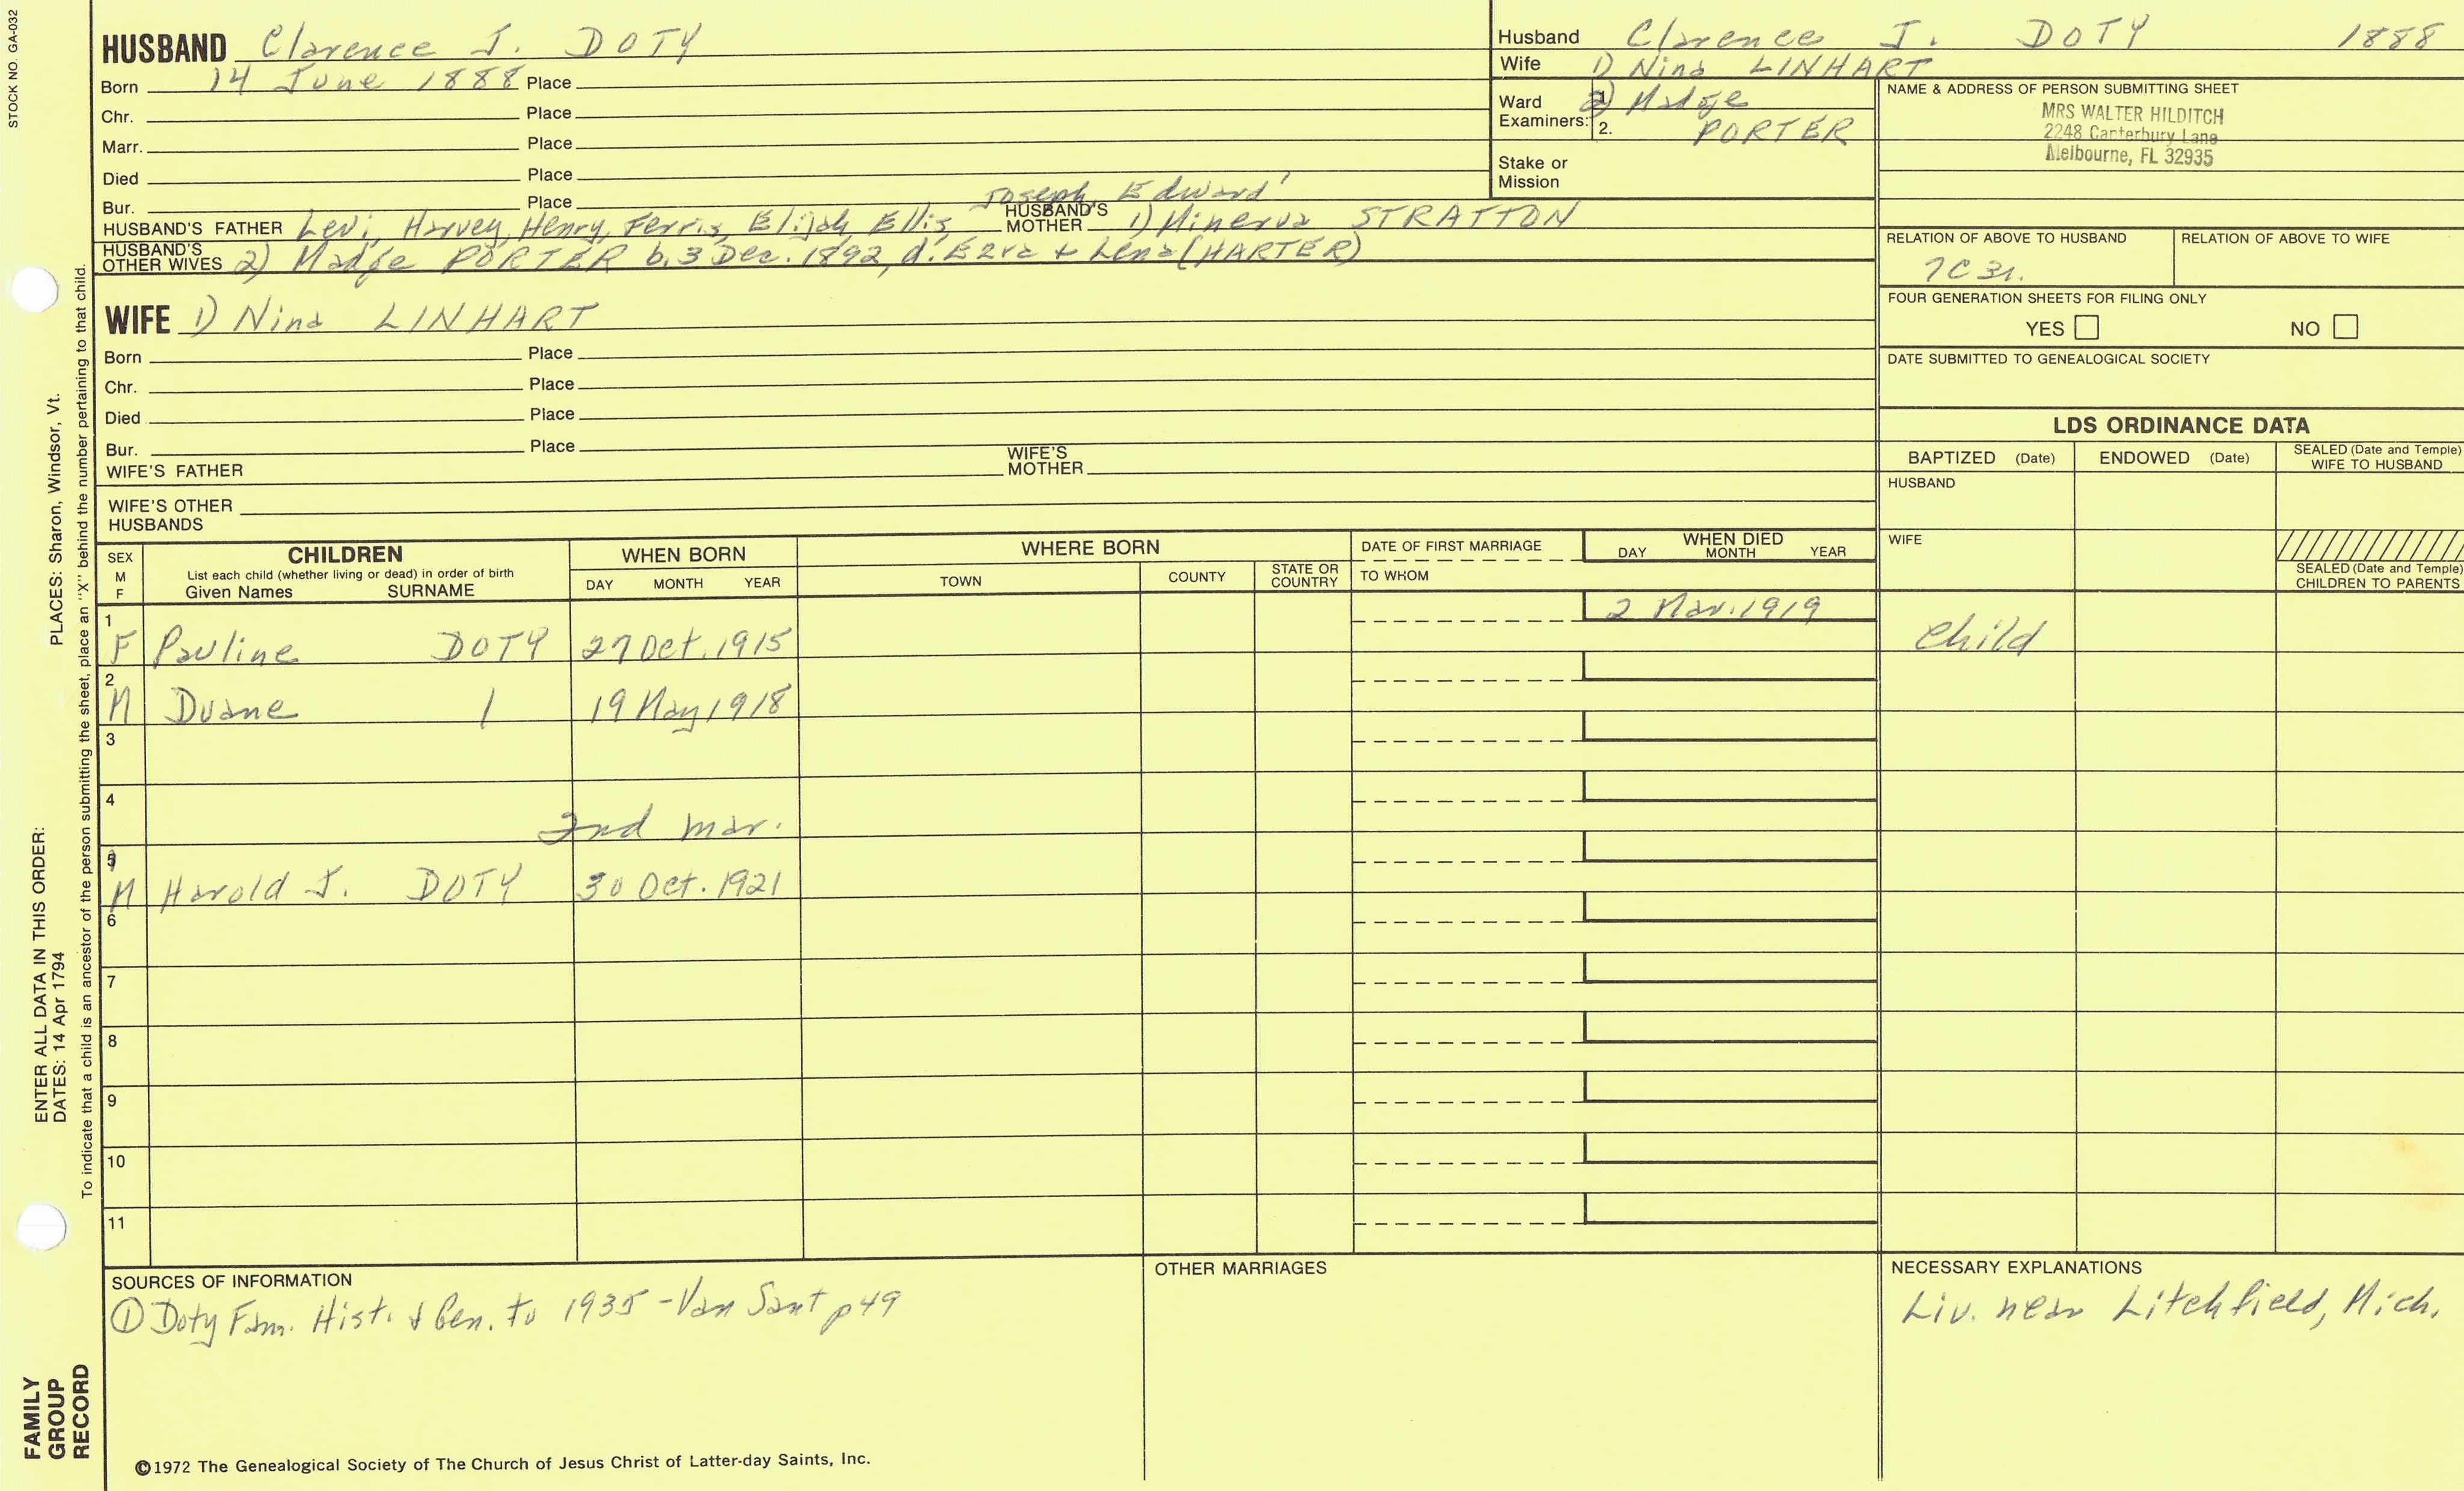 STOCK NO. GA-032
HUSBAND Clarence J. DOTY
Born 14 June 1888 Place
Chr. Place
Marr. Place
Died Place
Bur. Place
Joseph Edward
HUSBAND'S FATHER Levi, Harvey, Henry, Ferris, Elijah, Ellis, HUSBAND'S MOTHER 1) Minerva STRATTON
HUSBAND'S OTHER WIVES 2) Madge PORTER b. 3 Dec. 1892, d. Ezra + Lena (HARTER)
WIFE 1) Nina LINHART
Born Place
Chr. Place
Died Place
Bur. Place
WIFE'S FATHER WIFE'S MOTHER
WIFE'S OTHER HUSBANDS
Husband Clarence J. DOTY 1888
Wife 1) Nina LINHART
Ward 1. 2) Madge
Examiners: 2. PORTER
Stake or
Mission
NAME & ADDRESS OF PERSON SUBMITTING SHEET
MRS WALTER HILDITCH
2248 Canterbury Lane
Melbourne, FL 32935
RELATION OF ABOVE TO HUSBAND RELATION OF ABOVE TO WIFE
7C 3r.
FOUR GENERATION SHEETS FOR FILING ONLY
YES NO
DATE SUBMITTED TO GENEALOGICAL SOCIETY
LDS ORDINANCE DATA
BAPTIZED (Date) ENDOWED (Date) SEALED (Date and Temple) WIFE TO HUSBAND
HUSBAND
WIFE
SEALED (Date and Temple) CHILDREN TO PARENTS
SEX M F
CHILDREN
List each child (whether living or dead) in order of birth
Given Names SURNAME
WHEN BORN
DAY MONTH YEAR
WHERE BORN
TOWN COUNTY STATE OR COUNTRY
DATE OF FIRST MARRIAGE
TO WHOM
WHEN DIED
DAY MONTH YEAR
1 2 Mar. 1919
F Pauline DOTY 27 Oct. 1915 Child
2
M Duane 19 May 1918
3
4
2nd mar.
5
M Harold J. DOTY 30 Oct. 1921
6
7
8
9
10
11
SOURCES OF INFORMATION
① Doty Fam. Hist. & Gen. to 1935 - Van Sant p 49
OTHER MARRIAGES
NECESSARY EXPLANATIONS
Liv. near Litchfield, Mich.
©1972 The Genealogical Society of The Church of Jesus Christ of Latter-day Saints, Inc.
ENTER ALL DATA IN THIS ORDER:
DATES: 14 Apr 1794
PLACES: Sharon, Windsor, Vt.
To indicate that a child is an ancestor of the person submitting the sheet, place an "X" behind the number pertaining to that child.
FAMILY
GROUP
RECORD